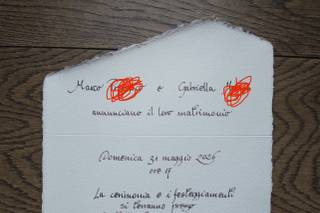 Marco e Gabriella
annunciano il loro matrimonio
Domenica 31 maggio 2026
ore 17
La cerimonia e i festeggiamenti
si terranno presso